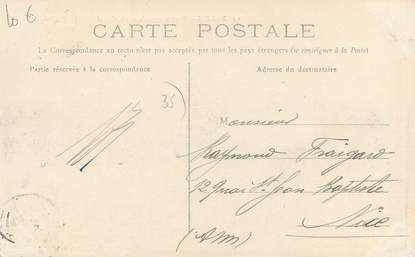 60 €
CARTE POSTALE
La Correspondance au recto n'est pas acceptée par tous les pays étrangers (se renseigner à la Poste)
Partie réservée à la correspondance
Adresse du destinataire
35
Monsieur
Raymond Fraigard
12 Quai St Jean Baptiste
Nice
(AM)